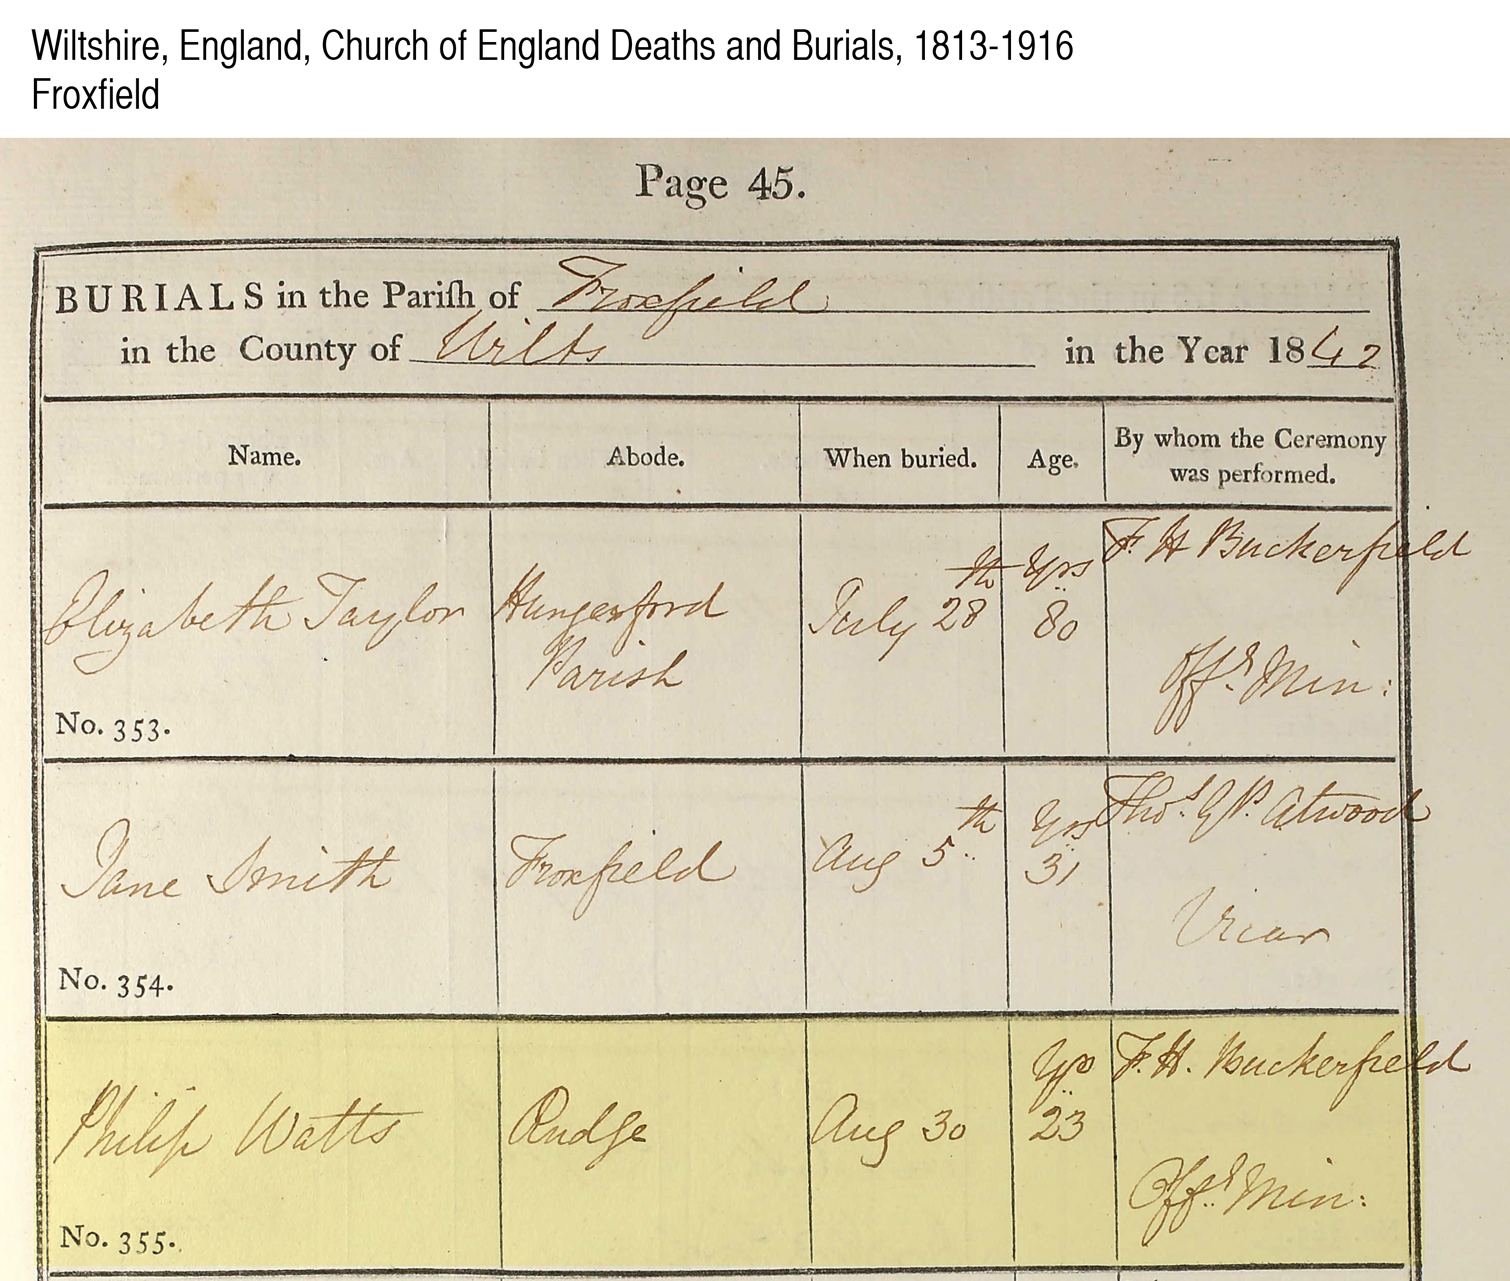 Wiltshire, England, Church of England Deaths and Burials, 1813-1916
Froxfield
Page 45.
BURIALS in the Pariſh of Froxfield
in the County of Wilts in the Year 1842
Name. Abode. When buried. Age. By whom the Ceremony was performed.
Elizabeth Taylor
No. 353.
Hungerford
Parish
July 28th
Yrs
80
F. H Buckerfield
Offd. Min:
Jane Smith
No. 354.
Froxfield
Aug 5th
Yrs
31
Thos. G P. Atwood
Vicar
Philip Watts
No. 355.
Rudge
Aug 30
Yrs
23
F. H. Buckerfield
Offd. Min: